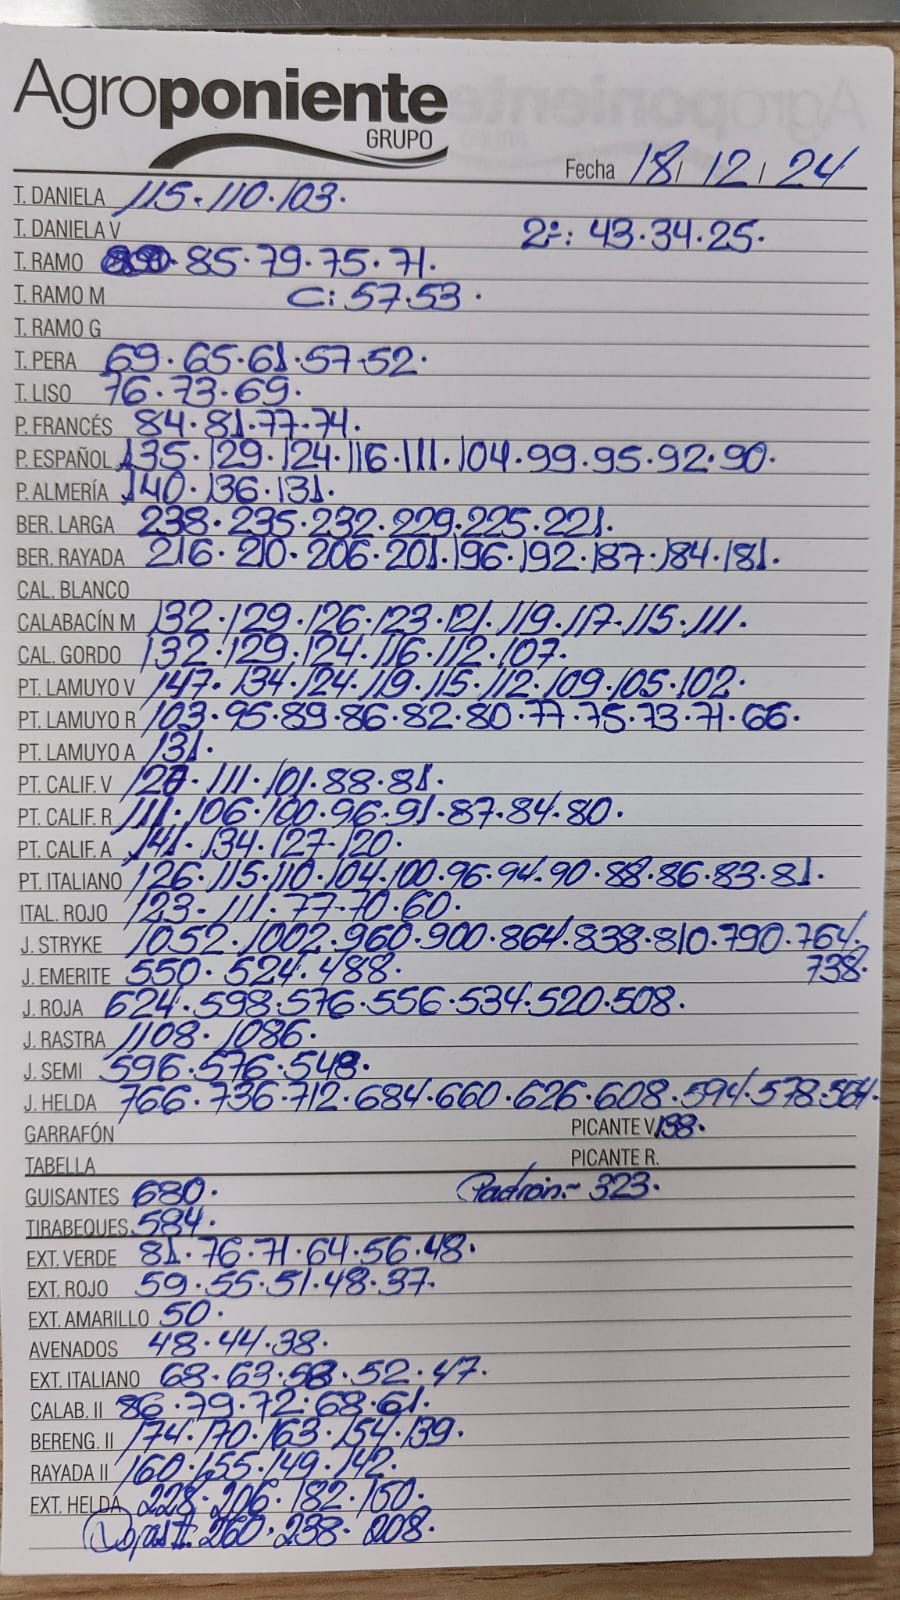 Agroponiente
GRUPO
Fecha 18/ 12 / 24
T. DANIELA 115.110.103.
T. DANIELA V 2ª: 43.34.25.
T. RAMO 85.79.75.71.
T. RAMO M C: 57.53.
T. RAMO G
T. PERA 69.65.61.57.52.
T. LISO 76.73.69.
P. FRANCÉS 84.81.77.74.
P. ESPAÑOL 135.129.124.116.111.104.99.95.92.90.
P. ALMERÍA 140.136.131.
BER. LARGA 238.235.232.229.225.221.
BER. RAYADA 216.210.206.201.196.192.187.184.181.
CAL. BLANCO
CALABACÍN M 132.129.126.123.121.119.117.115.111.
CAL. GORDO 132.129.124.116.112.107.
PT. LAMUYO V 147.134.124.119.115.112.109.105.102.
PT. LAMUYO R 103.95.89.86.82.80.77.75.73.71.66.
PT. LAMUYO A 131.
PT. CALIF. V 111.101.88.81.
PT. CALIF. R 111.106.100.96.91.87.84.80.
PT. CALIF. A 141.134.127.120.
PT. ITALIANO 126.115.110.104.100.96.94.90.88.86.83.81.
ITAL. ROJO 123.111.77.70.60.
J. STRYKE 1052.1002.960.900.864.838.810.790.764.
738.
J. EMERITE 550.524.488.
J. ROJA 624.598.576.556.534.520.508.
J. RASTRA 1108.1086.
J. SEMI 596.576.548.
J. HELDA 766.736.712.684.660.626.608.594.578.564.
GARRAFÓN PICANTE V 198.
TABELLA PICANTE R.
GUISANTES 680. Padrón.- 323.
TIRABEQUES 584.
EXT. VERDE 81.76.71.64.56.48.
EXT. ROJO 59.55.51.48.37.
EXT. AMARILLO 50.
AVENADOS 48.44.38.
EXT. ITALIANO 68.63.58.52.47.
CALAB. II 86.79.72.68.61.
BERENG. II 174.170.163.154.139.
RAYADA II 160.155.149.142.
EXT. HELDA 228.206.182.150.
260.238.208.